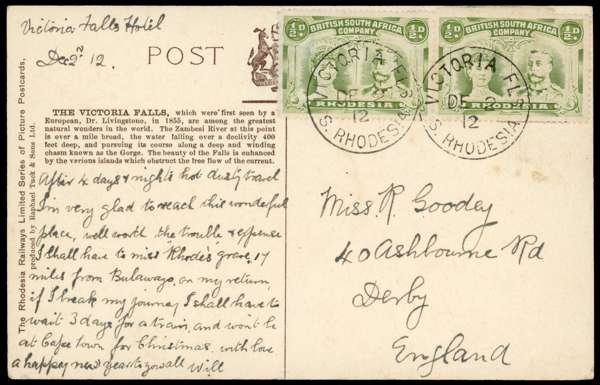 Victoria Falls Hotel
Dec 2nd 12.
POST
THE VICTORIA FALLS, which were first seen by a
European, Dr. Livingstone, in 1855, are among the greatest
natural wonders in the world. The Zambesi River at this point
is over a mile broad, the water falling over a declivity 400
feet deep, and pursuing its course along a deep and winding
chasm known as the Gorge. The beauty of the Falls is enhanced
by the verions islands which obstruct the free flow of the current.
After 4 days & nights hot dusty travel
I'm very glad to reach this wonderful
place, well worth the trouble & expense
I shall have to miss Rhodes grave, 17
miles from Bulawayo, on my return,
if I break my journey I shall have to
wait 3 days for a train, and won't be
at Cape town for Christmas, with love
a happy new year to you all Will
The Rhodesia Railways Limited Series of Picture Postcards,
produced by Raphael Tuck & Sons Ltd.
½D. BRITISH SOUTH AFRICA COMPANY. ½D.
RHODESIA
½D. BRITISH SOUTH AFRICA COMPANY. ½D.
RHODESIA
VICTORIA FLS
DE
12
S. RHODESIA
VICTORIA FLS
DE
12
S. RHODESIA
Miss R. Goodey
40 Ashbourne Rd
Derby
England